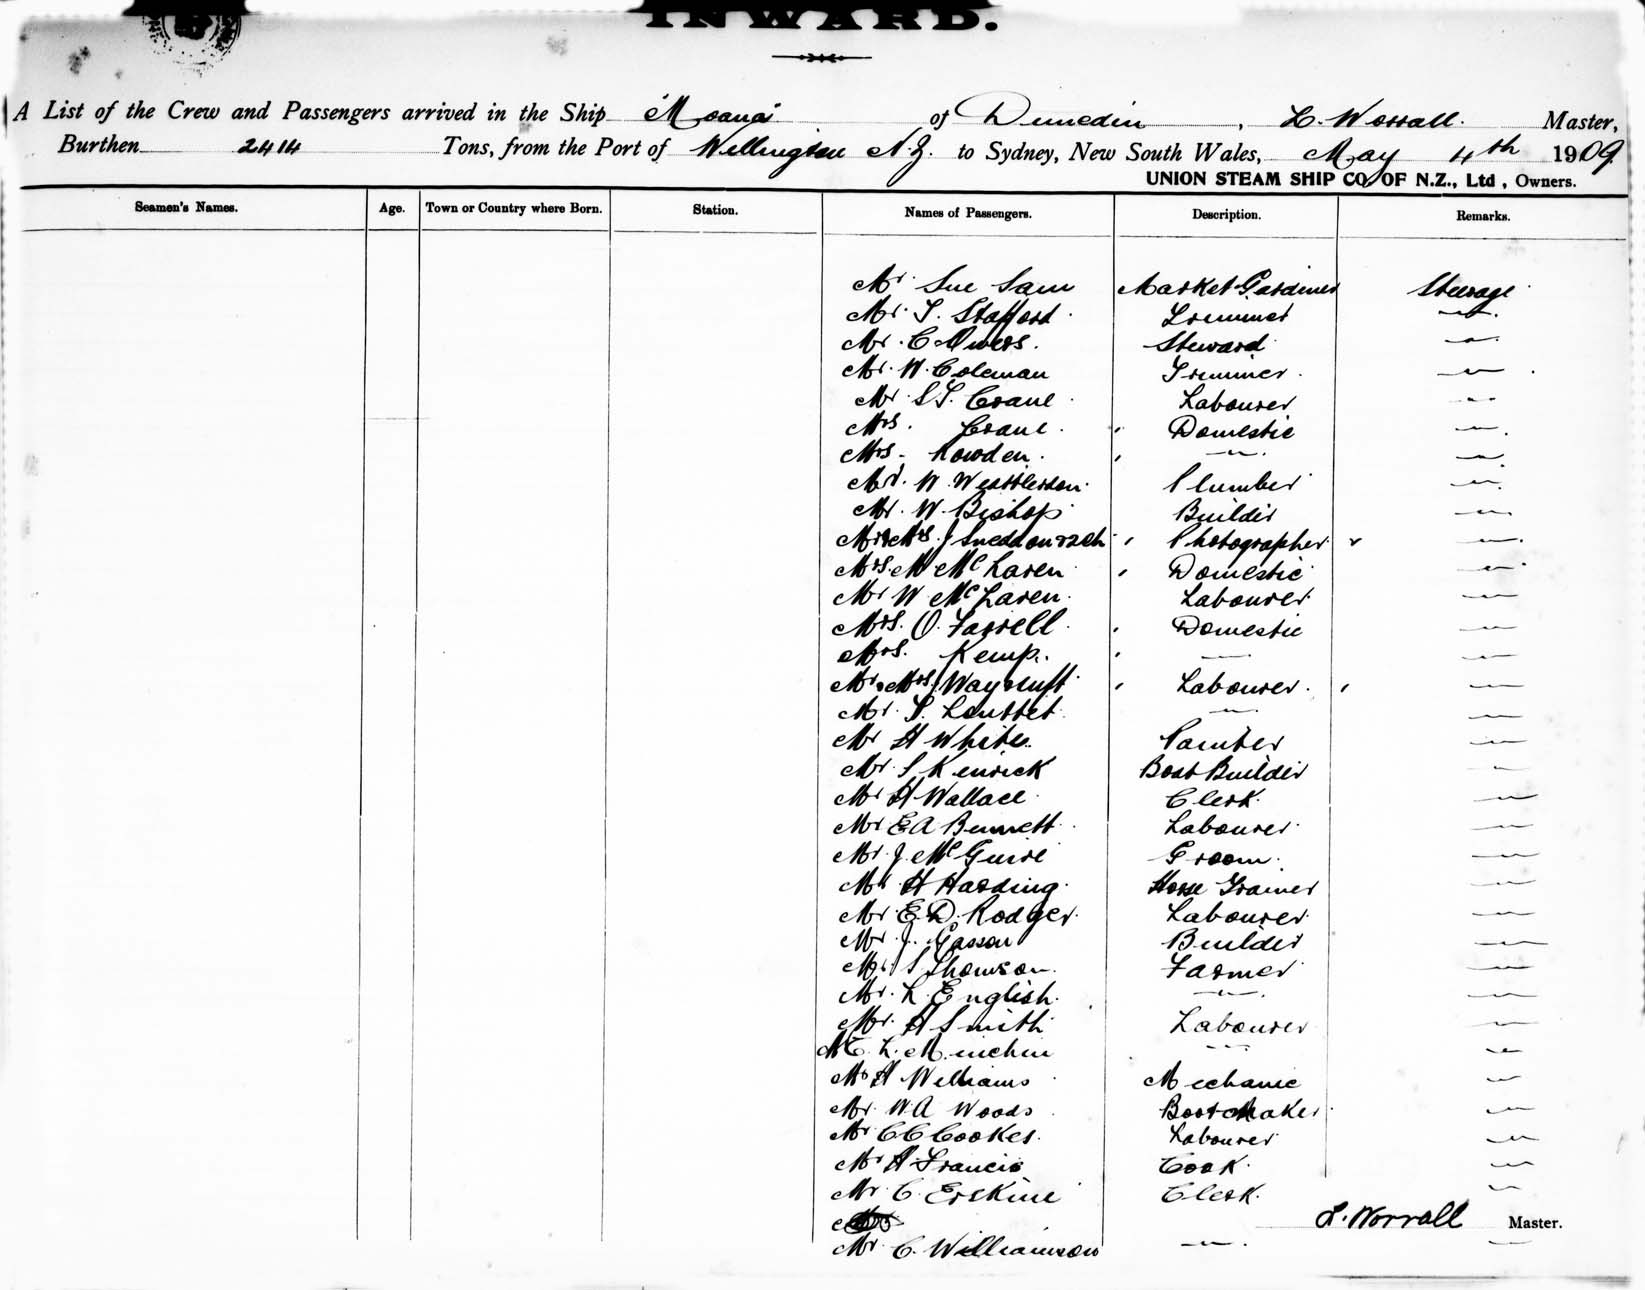 INWARD.
A List of the Crew and Passengers arrived in the Ship "Moana" of Dunedin, L. Worrall. Master,
Burthen 2414 Tons, from the Port of Wellington N.Z. to Sydney, New South Wales, May 4th 1909
UNION STEAM SHIP CO. OF N.Z., Ltd, Owners.
Seamen's Names. Age. Town or Country where Born. Station. Names of Passengers. Description. Remarks.
Mr Sue Sam Market Gardiner Steerage
Mr. T. Stafford Trimmer "
Mr. C. Owers. Steward "
Mr. W. Coleman Trimmer. "
Mr S T. Crane Labourer "
Mrs. Crane. Domestic "
Mrs. Rowden. " "
Mr. W. Plumber "
Mr. W. Bishop Builder "
Mr & Mrs J Sneddon & 2 Ch Photographer "
Mrs. M McLaren Domestic "
Mr W McLaren. Labourer "
Mrs. O. Farrell. Domestic "
Mrs. Kemp. " "
Mr & Mrs Labourer. "
Mr. " "
Mr H White. Painter "
Mr. S Kenrick Boat Builder "
Mr H Wallace Clerk. "
Mr E A Bennett Labourer "
Mr. J. McGuire Groom. "
Mr H Harding. Horse Trainer "
Mr. E. D. Rodger. Labourer "
Mr. J. Gasson Builder "
Mr. S Thomson. Farmer "
Mr. L. English. " "
Mr. H Smith Labourer "
L. Minchin " "
Mr H Williams Mechanic "
Mr. W A Woods Bootmaker "
Mr C C Cookes. Labourer "
Mr H Francis Cook. "
Mr. C. Erskine Clerk. "
L. Worrall Master.
Mr. C. Williamson " "